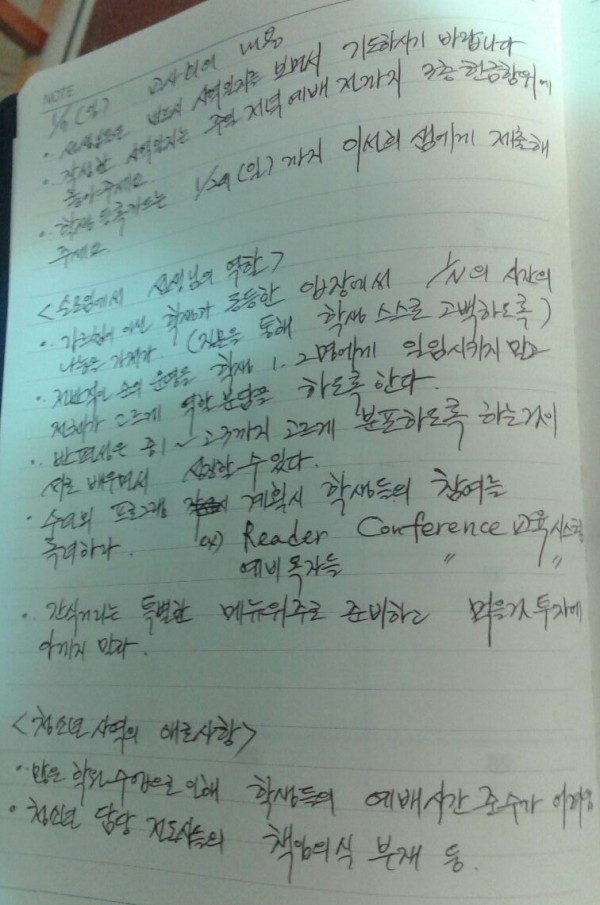 NOTE
1/8 (일) 교사회의 내용
· 선생님들은 반드시 사역일지를 보면서 기도하시기 바랍니다
· 작성한 사역일지는 주일 저녁 예배 전까지 3층 헌금함위에
놓아주세요.
· 학생 등록카드는 1/29 (일) 까지 이선희 샘에게 제출해
주세요
<소모임에서 선생님의 역할>
· 가르침이 아닌 학생과 동등한 입장에서 1/N의 시간의
나눔을 가져라. (질문을 통해 학생 스스로 고백하도록)
· 전반적인 순의 운영을 학생 1, 2명에게 일임시키지 말고
전체가 고르게 역할분담을 하도록 한다.
· 반편성은 중1~고3까지 고르게 분포하도록 하는것이
서로 배우면서 성장할 수 있다.
· 수련회 프로그램 계획시 학생들의 참여를
독려하라. ex) Reader Conference 교육시스템
예비 독자들 " "
· 간식거리는 특별한 메뉴위주로 준비하고 먹을것 투자에
아끼지 마라.
<청소년 사역의 애로사항>
· 많은 학과 수업으로 인해 학생들의 예배시간 준수가 어려움
· 청소년 담당 전도사들의 책임의식 부재 등.